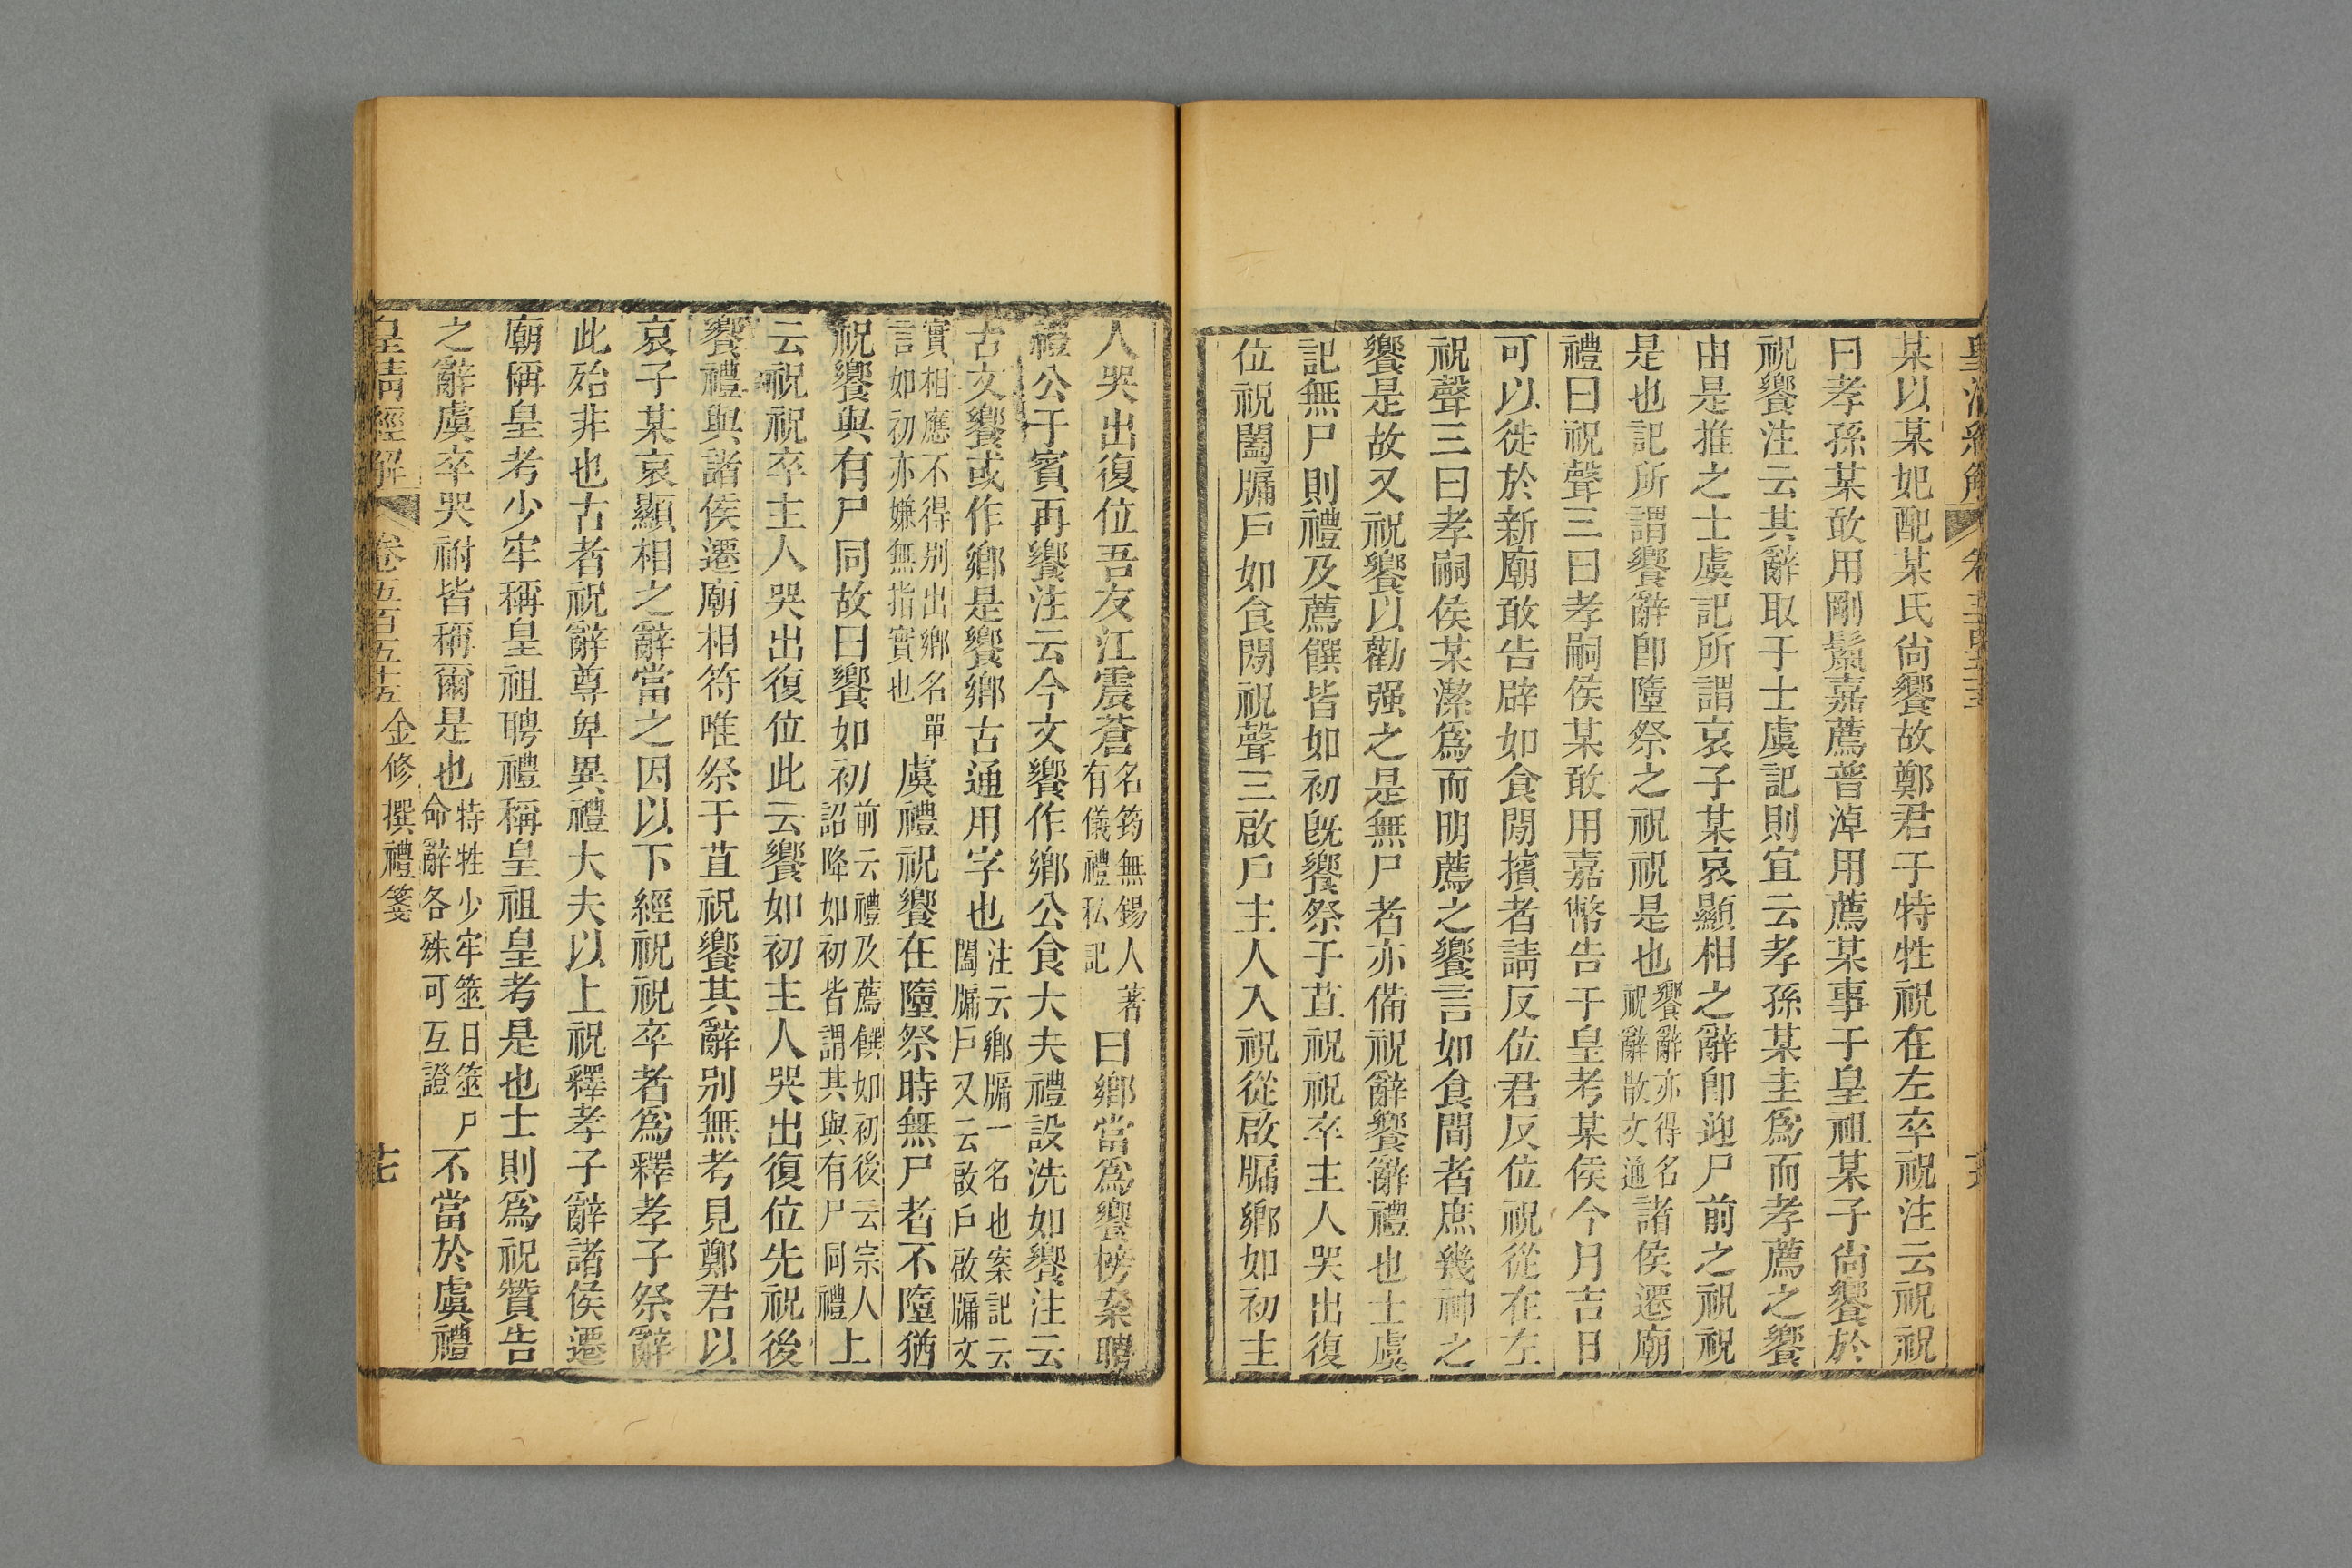 皇清經解 卷五百五十五
某以某妃配某氏尙饗故鄭君于特牲祝在左卒祝注云祝祝
曰孝孫某敢用剛鬛嘉薦普淖用薦某事于皇祖某子尙饗於
祝饗注云其辭取于士虞記則宜云孝孫某圭爲而孝薦之饗
由是推之士虞記所謂哀子某哀顯相之辭卽迎尸前之祝祝
是也記所謂饗辭卽隋祭之祝祝是也饗辭亦得名祝辭散文通諸侯遷廟
禮曰祝聲三曰孝嗣侯某敢用嘉幣告于皇考某侯今月吉日
可以徙於新廟敢告辟如食閒擯者請反位君反位祝從在左
祝聲三曰孝嗣侯某潔爲而明薦之饗言如食閒者庶幾神之
饗是故又祝饗以勸强之是無尸者亦備祝辭饗辭禮也士虞
記無尸則禮及薦饌皆如初旣饗祭于苴祝祝卒主人哭出復
位祝闔牖戶如食閒祝聲三啟戶主人入祝從啟牖鄉如初主
人哭出復位吾友江震蒼名筠無錫人著有儀禮私記曰鄉當爲饗㮄案聘
禮公于賓再饗注云今文饗作鄉公食大夫禮設洗如饗注云
古文饗或作鄉是饗鄉古通用字也注云鄉牖一名也案記云闔牖戶又云啟戶啟牖文
實相應不得别出鄉名單言如初亦嫌無指實也虞禮祝饗在隋祭時無尸者不隋猶
祝饗與有尸同故曰饗如初前云禮及薦饌如初後云宗人詔降如初皆謂其與有尸同禮上
云祝祝卒主人哭出復位此云饗如初主人哭出復位先祝後
饗禮與諸侯遷廟相符唯祭于苴祝饗其辭别無考見鄭君以
哀子某哀顯相之辭當之因以下經祝祝卒者爲釋孝子祭辭
此殆非也古者祝辭尊卑異禮大夫以上祝釋孝子辭諸侯遷
廟稱皇考少牢稱皇祖聘禮稱皇祖皇考是也士則爲祝贊告
之辭虞卒哭祔皆稱爾是也特牲少牢筮日筮尸命辭各殊可互證不當於虞禮
皇清經解 卷五百五十五 金修撰禮箋 七